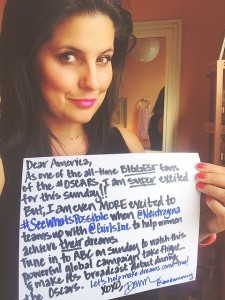 Dear America,
As one of the all-time BIGGEST fans
of the #OSCARS, I am super excited
for this sunday!!!
But, I am even MORE excited to
#SeeWhatsPossible when @Neutrogena
teams up with @GirlsInc to help women
achieve their dreams.
Tune in to ABC on Sunday to watch this
powerful global campaign take flight...
to make its broadcast debut during
the Oscars. Let's help make dreams come true!
XOXO,